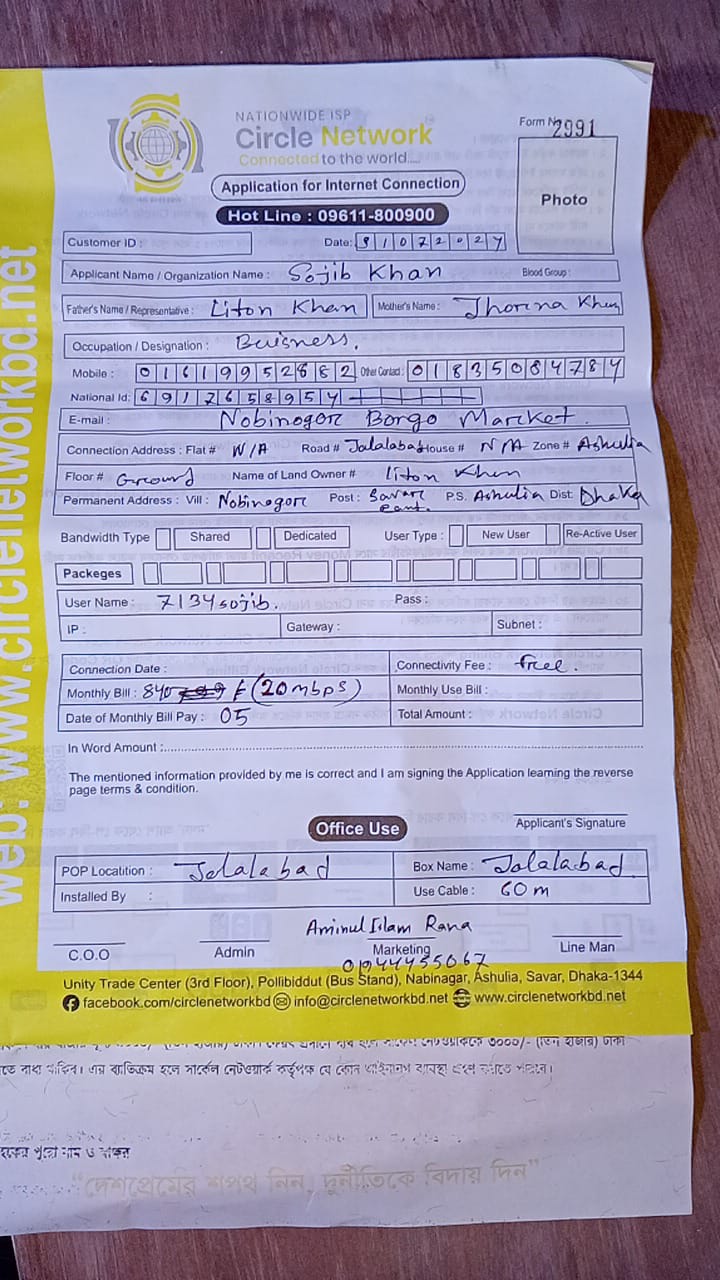 NATIONWIDE ISP
Circle Network
Connected to the world....
Form No 2991
Photo
Application for Internet Connection
Hot Line : 09611-800900
Customer ID :
Date: 31072024
Applicant Name / Organization Name : Sojib Khan Blood Group :
Father's Name / Representative : Liton Khan Mother's Name : Jhorina Khan
Occupation / Designation : Buisness.
Mobile : 01619952882 Other Contact : 01835084784
National Id: 6917658954
E-mail : Nobinogor Borgo Market.
Connection Address : Flat # N/A Road # Jalalabad House # N/A Zone # Ashulia
Floor # Ground Name of Land Owner # Liton Khan
Permanent Address : Vill : Nobinogor Post : Savar Cant. P.S. Ashulia Dist: Dhaka
Bandwidth Type Shared Dedicated User Type : New User Re-Active User
Packeges
User Name : 7134sojib. Pass :
IP : Gateway : Subnet :
Connection Date : Connectivity Fee : free.
Monthly Bill : 840 /- (20mbps) Monthly Use Bill :
Date of Monthly Bill Pay : 05 Total Amount :
In Word Amount :
The mentioned information provided by me is correct and I am signing the Application learning the reverse
page terms & condition.
Applicant's Signature
Office Use
POP Locatition : Jalalabad Box Name : Jalalabad.
Installed By : Use Cable : 60 m
Aminul Islam Rana
C.O.O Admin Marketing Line Man
01944455067
Unity Trade Center (3rd Floor), Pollibiddut (Bus Stand), Nabinagar, Ashulia, Savar, Dhaka-1344
facebook.com/circlenetworkbd info@circlenetworkbd.net www.circlenetworkbd.net
web: www.circlenetworkbd.net
৩০০০/- (তিন হাজার) টাকা
তে বাধ্য থাকিব। এর ব্যতিক্রম হলে সার্কেল নেটওয়ার্ক কর্তৃপক্ষ যে কোন আইনানুগ ব্যবস্থা গ্রহণ করিতে পারবে।
পুরো নাম ও স্বাক্ষর
"দেশপ্রেমের শপথ নিন, দুর্নীতিকে বিদায় দিন"